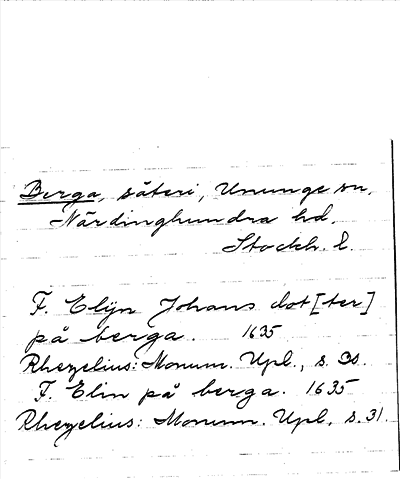 Berga, säteri, Ununge sn,
Närdinghundra hd,
Stockh. l.
F. Elijn Johans dot[ter]
på berga. 1635
Rhezelius: Monum. Upl., s.
F. Elin på berga. 1635
Rhezelius: Monum. Upl, s. 31.